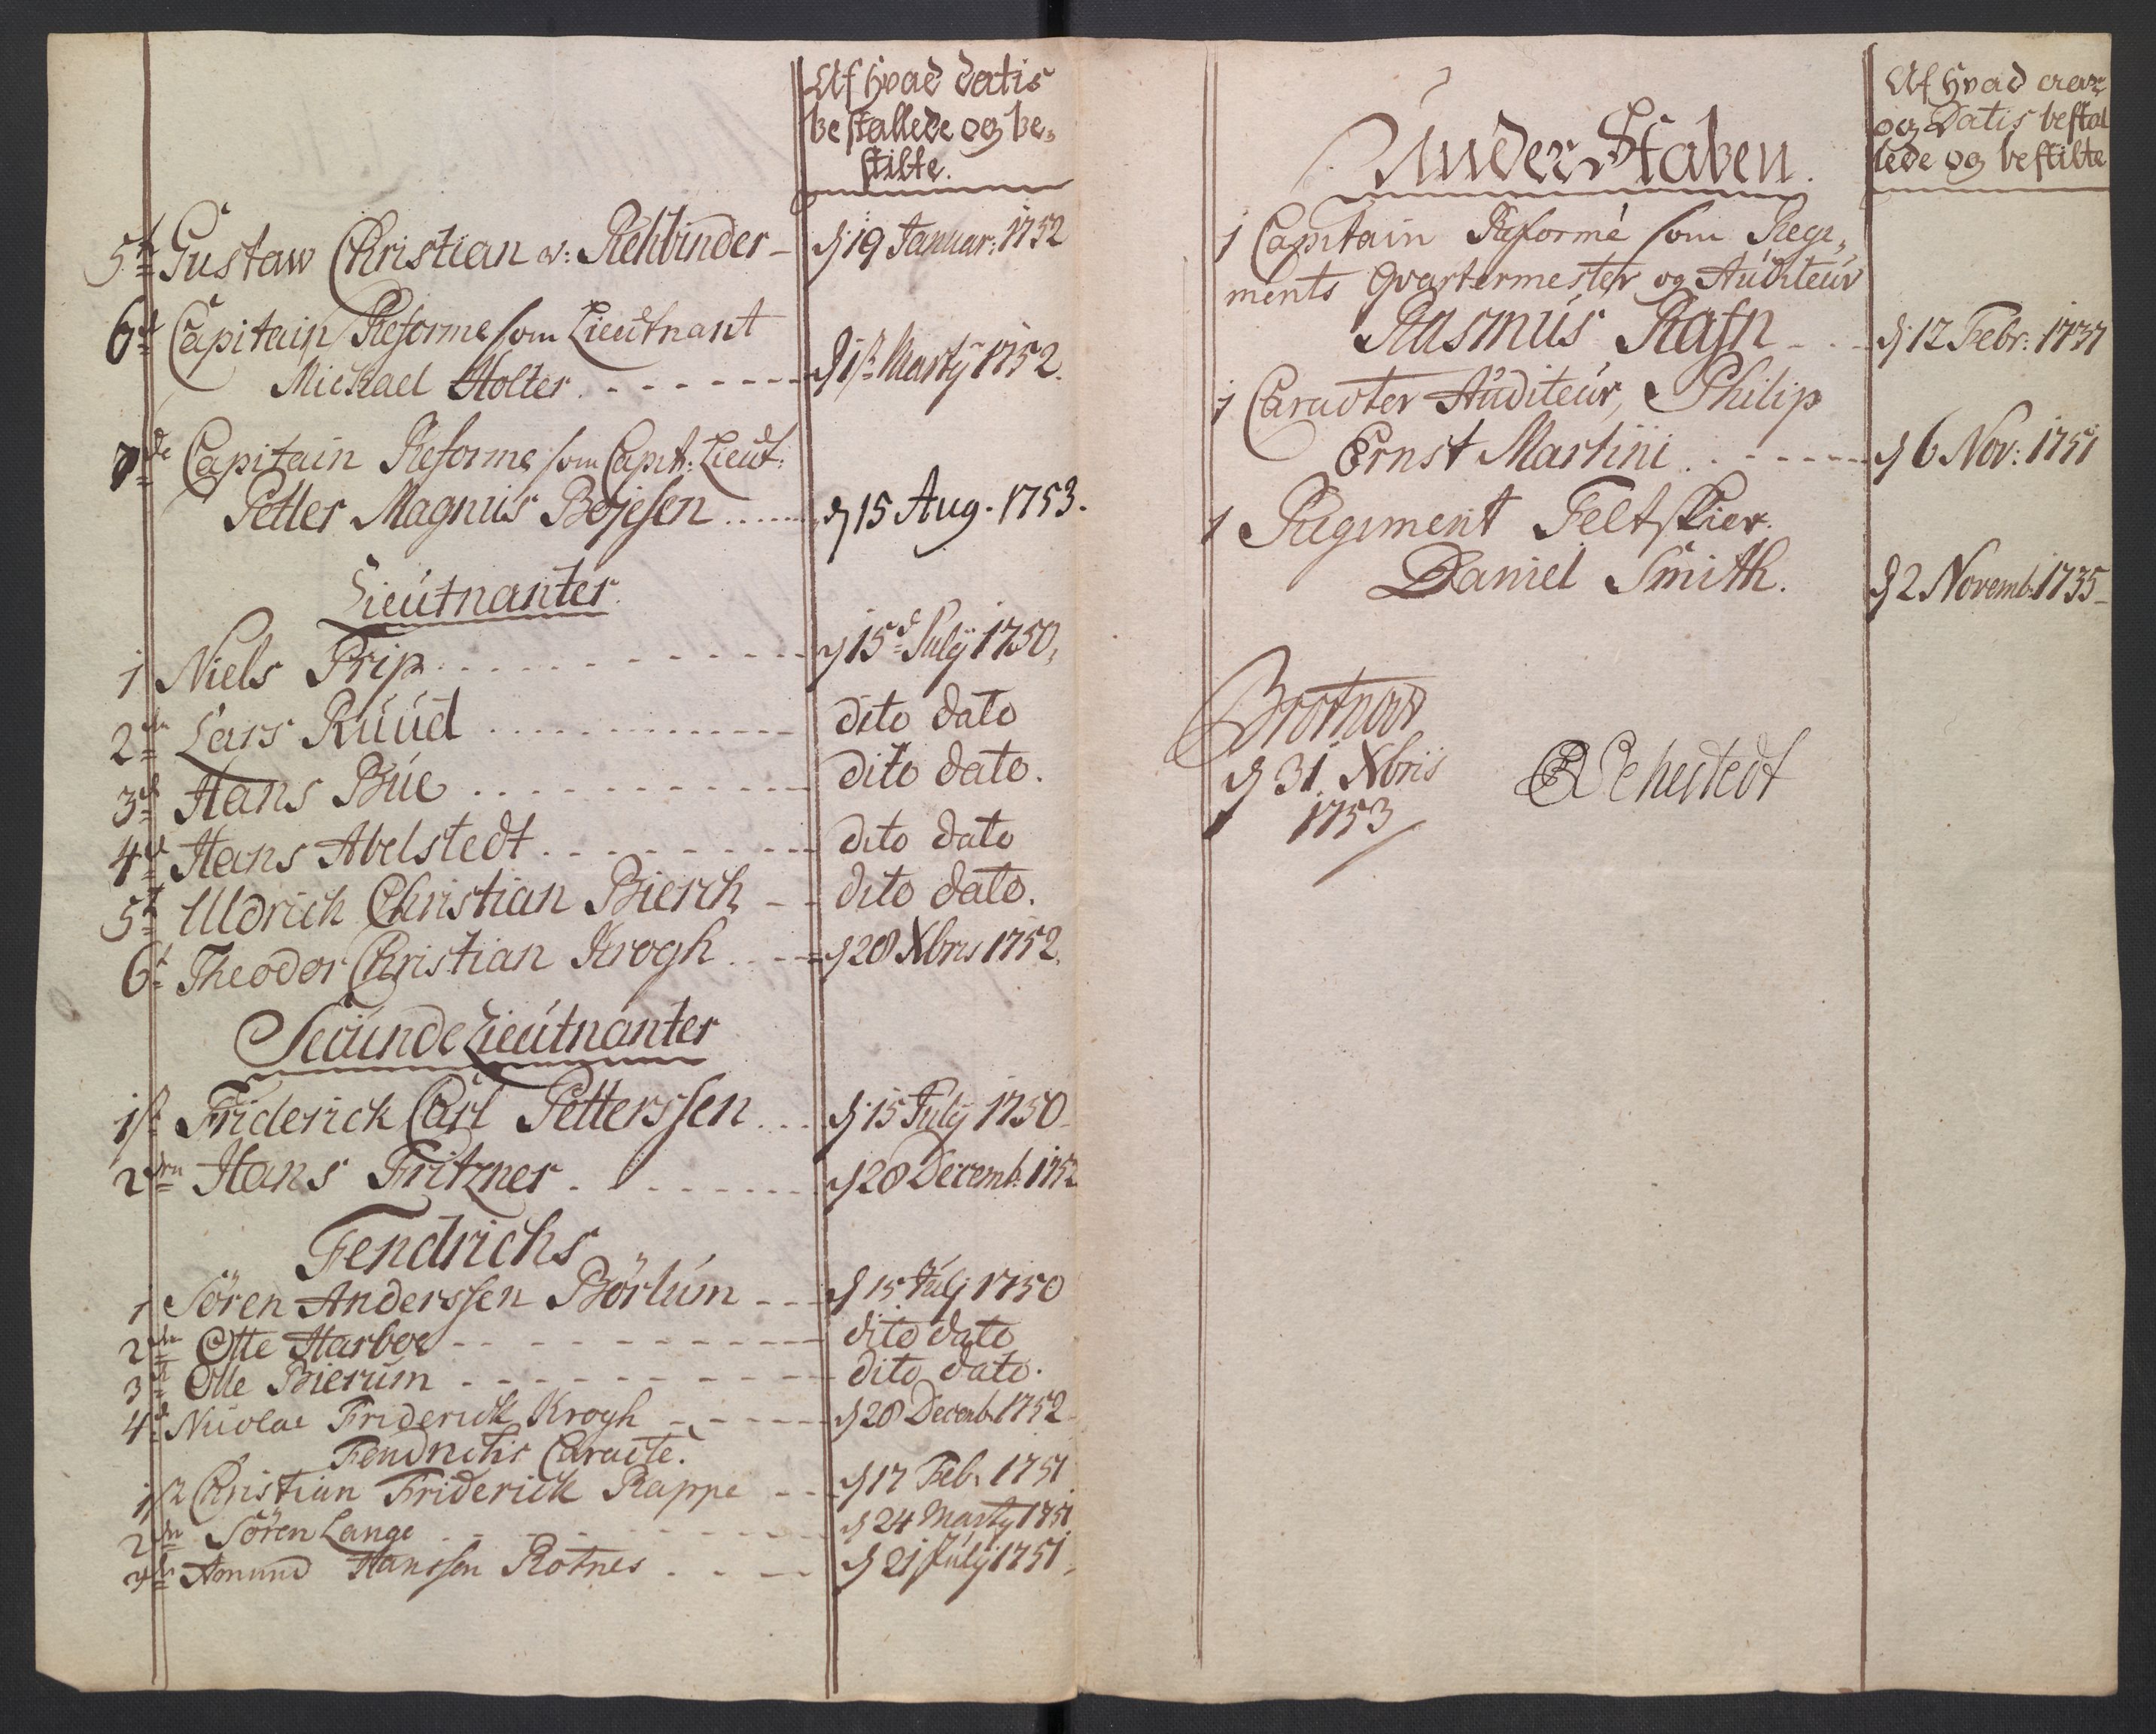 Af hvad datis
bestallede og be-
stilte.
5t Gustaw Christian v: Rehbinder - d 19 Januar: 1752
6t Capitain Reforme som Lieutnant
Michael Holter. - - - - - - - d 1st Martÿ 1752.
7de Capitain Reforme som Capit: Lieut:
Petter Magnus Bojesen ....... d 15 Aug. 1753.
Lieutnanter
1 Niels Trip. - - - - - - - - - d 15d Julÿ 1750,
2den Lars Ruud ............... dito dato
3d Hans Bue ............ dito dato.
4d Hans Abelstedt. - - - - - - - dito dato
5t Uldrich Christian Bierch - - dito dato.
6t Theodor Christian Krogh ... d 28 Xbris 1752.
Secunde Lieutnanter
1st Friderick Carl Petterssen ... d 15 Julÿ 1750
2den Hans Fritzner. - - - - - - - d 28 Decemb: 1752
Fendrichs
1 Sören Anderssen Börlum - - - d 15 Julj 1750
2den Otte Harboe - - - - - - - - - dito dato
3d Olle Bierum - - - - - - - - - dito dato.
4d Nicolai Friderick Krogh - - - - - d 28 Decemb 1752
Fendrichs Caracte.
1st Christian Friderick Rappe - - d 17 Feb. 1751
2den Sören Lange - - - - - - - - - d 24 Martÿ 1751
3de Amund Hanssen Rotnes . - - - d 21 Julÿ 1751
Af hvad aar
og Datis bestal
lede og bestilte
Under Staben.
1 Capitain Reformé som Regi-
ments Qvartermester og Auditeur
Rasmus Rafn - - - d 12 Febr: 1737
1 Caracter Auditeur, Philip
Ernst Martini . - - - - - - d 6 Nov: 1751
1 Regiment Feltskier.
Daniel Smith. d 2 Novemb: 1735
d 31 Xbris
1753